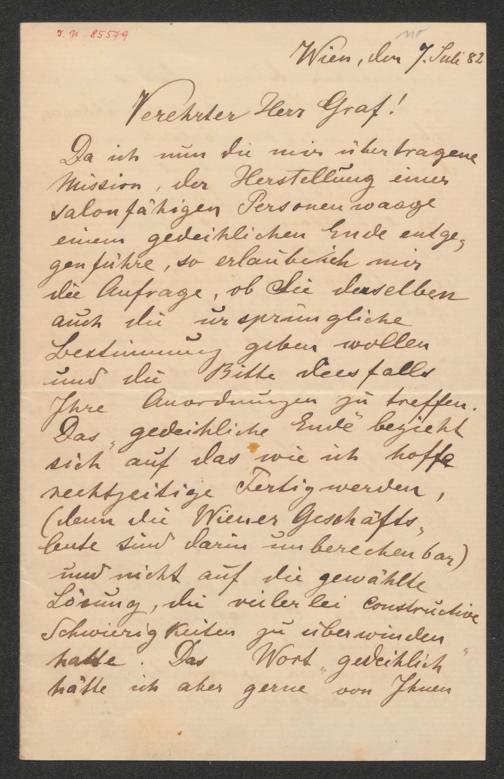 J. N. 85579
Wien, den 7. Juli 82
Verehrter Herr Graf!
Da ich nun die mir übertragene
Mission, der Herstellung einer
salonfähigen Personenwaage
einem gedeihlichen Ende entge„
genführe, so erlaube ich mir
die Anfrage, ob Sie derselben
auch die ursprüngliche
Bestimmung geben wollen
und die Bitte diesfalls
Ihre Anordnungen zu treffen.
Das „gedeihliche Ende" bezieht
sich auf das wie ich hoffe
rechtzeitige Fertigwerden,
(denn die Wiener Geschäfts„
leute sind darin unberechenbar)
und nicht auf die gewählte
Lösung, die vielerlei constructive
Schwierigkeiten zu überwinden
hatte. Das Wort „gedeihlich"
hätte ich aber gerne von Ihnen